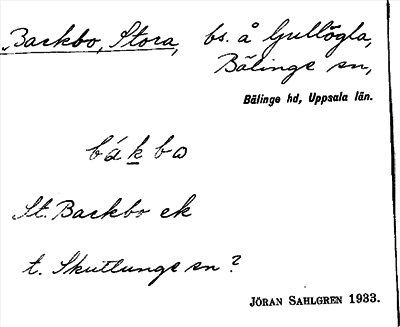 Backbo, Stora, bs. å Gullögla,
Bälinge sn,
Bälinge hd, Uppsala län.
bákbo
St. Backbo ek
t. Skutlunge sn?
JÖRAN SAHLGREN 1933.